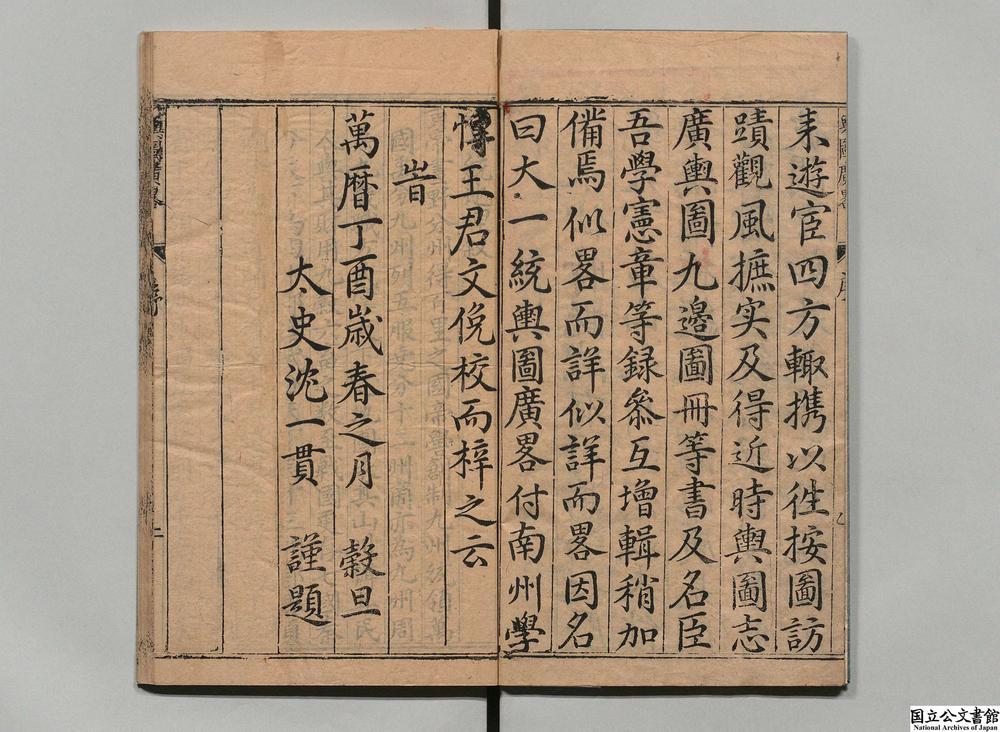 来遊宦四方輙携以徃按圖訪
蹟觀風摭实及得近時輿圖志
廣輿圖九邉圖冊等書及名臣
吾學憲章等録叅互增輯稍加
備焉似畧而詳似詳而畧因名
曰大一統輿圖廣畧付南州學
博王君文俛校而梓之云
旹
萬曆丁酉歲春之月穀旦
太史沈一貫謹題
輿圖廣畧
序
二
国立公文書館
National Archives of Japan